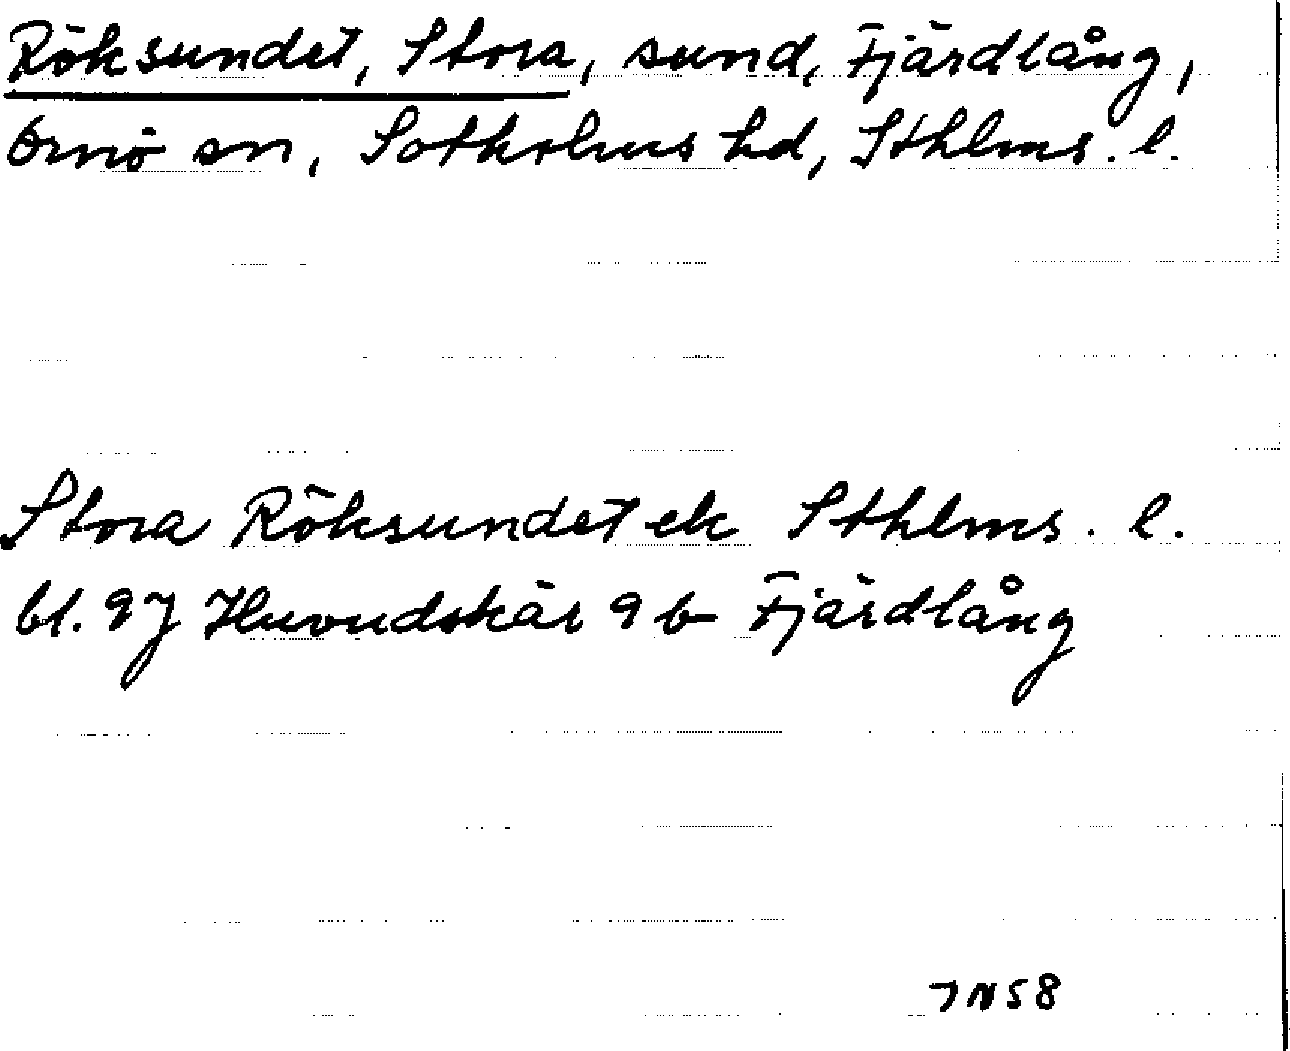 Röksundet, Stora, sund, Fjärdlång,
Ornö sn, Sotholms hd, Sthlms. l.
Stora Röksundet ek Sthlms. l.
bl. 9J Huvudskär 9 b Fjärdlång
7N58